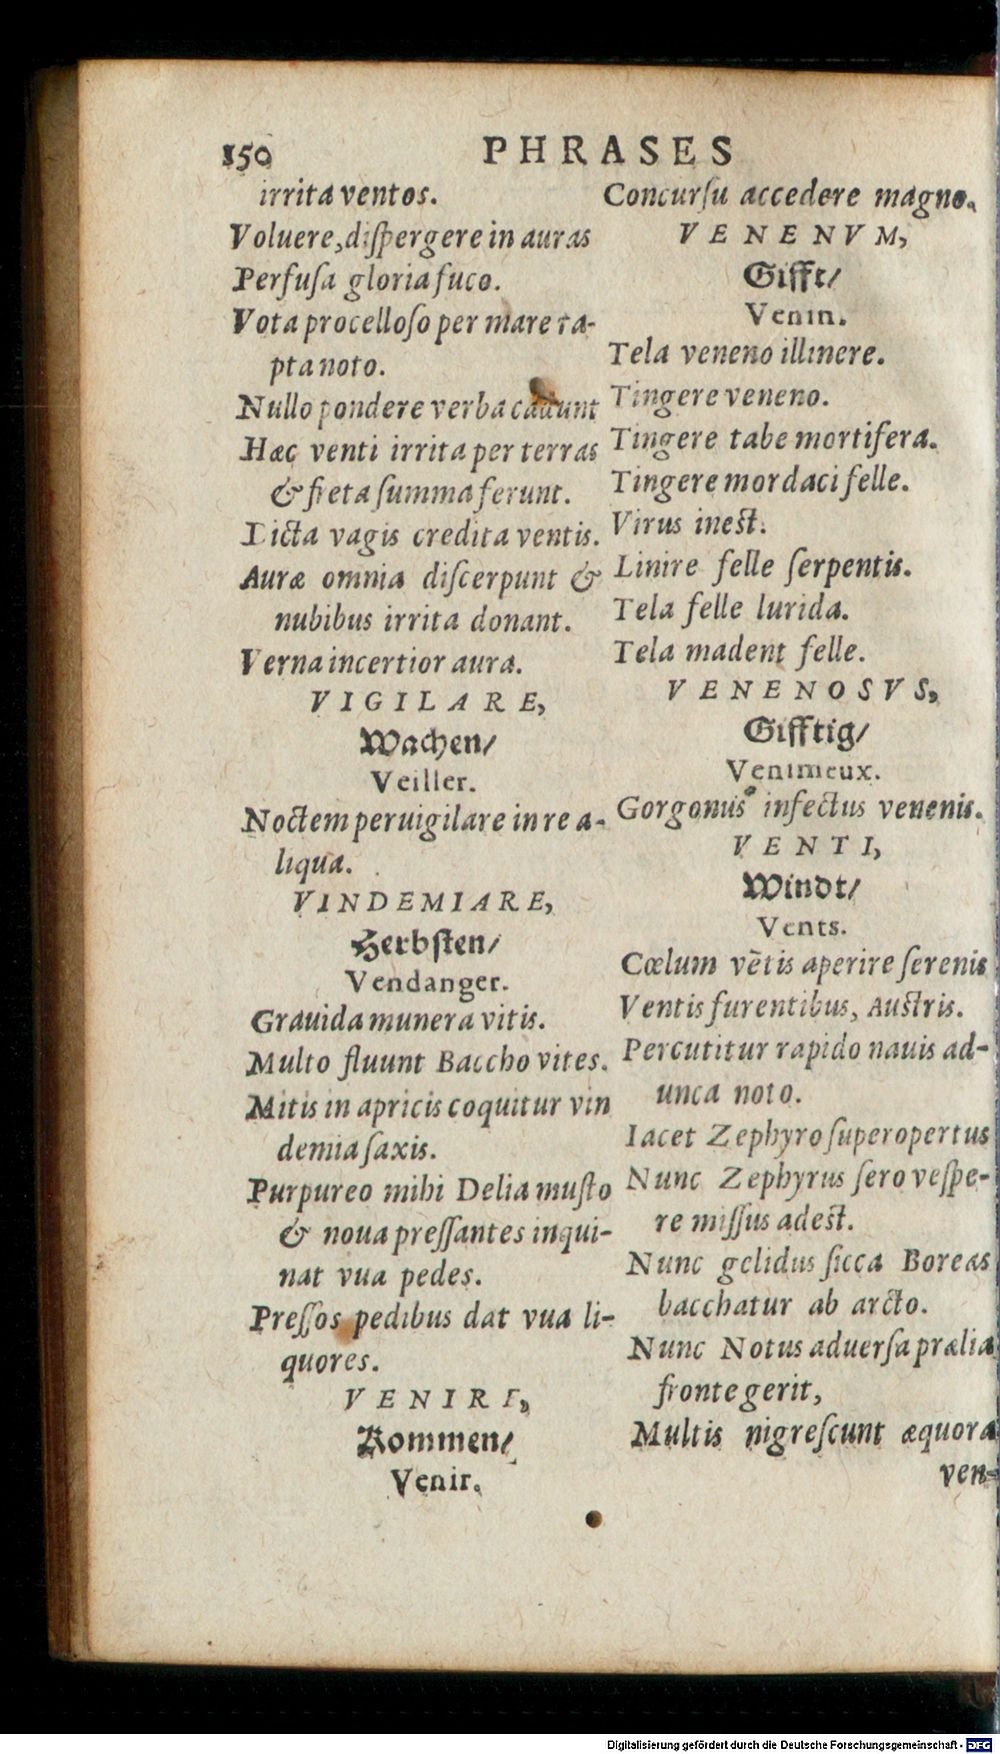 150 PHRASES
irrita ventos.
Voluere, diſpergere in auras
Perfuſa gloria fuco.
Vota procelloſo per mare ra-
pta noto.
Nullo pondere verba cadunt
Hæc venti irrita per terras
& freta ſumma ferunt.
Dicta vagis credita ventis.
Auræ omnia diſcerpunt &
nubibus irrita donant.
Verna incertior aura.
VIGILARE,
Wachen/
Veiller.
Noctem peruigilare in re a-
liqua.
VINDEMIARE,
Herbſten/
Vendanger.
Grauida munera vitis.
Multo fluunt Baccho vites.
Mitis in apricis coquitur vin
demia ſaxis.
Purpureo mihi Delia muſto
& noua preſſantes inqui-
nat vua pedes.
Preſſos pedibus dat vua li-
quores.
VENIRE,
Kommen/
Venir.
Concurſu accedere magno.
VENENVM,
Gifft/
Venin.
Tela veneno illinere.
Tingere veneno.
Tingere tabe mortifera.
Tingere mordaci felle.
Virus ineſt.
Linire felle ſerpentis.
Tela felle lurida.
Tela madent felle.
VENENOSVS,
Gifftig/
Venimeux.
Gorgonus infectus venenis.
VENTI,
Windt/
Vents.
Cœlum vẽtis aperire ſerenis
Ventis furentibus, Auſtris.
Percutitur rapido nauis ad-
unca noto.
Iacet Zephyro ſuperopertus
Nunc Zephyrus ſero veſpe-
re miſſus adeſt.
Nunc gelidus ſicca Boreas
bacchatur ab arcto.
Nunc Notus aduerſa prælia
fronte gerit,
Multis nigreſcunt æquora
ven-
Digitalisierung gefördert durch die Deutsche Forschungsgemeinschaft - DFG